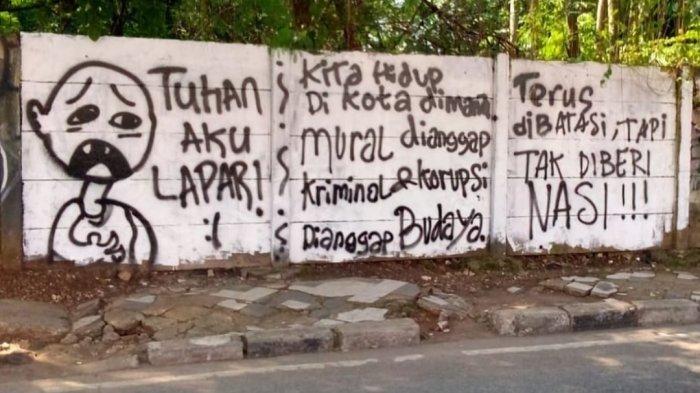 TUHAN
AKU
LAPAR!
:(
Kita Hidup
Di Kota dimana
MURAL dianggap
Kriminal & Korupsi
Dianggap Budaya.
Terus
diBATASi, TAPI
TAK DIBERI
NASI!!!